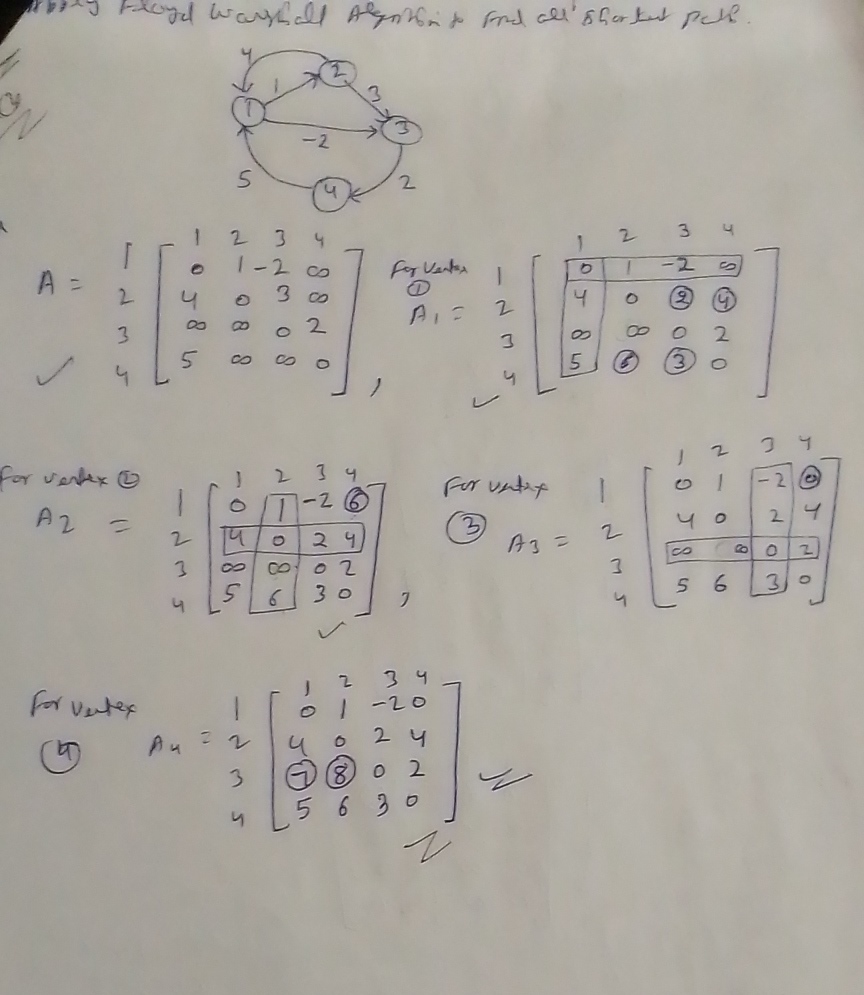 Floyd Warshall Algorithm to find all shortest path.
4
2
1
3
1
3
-2
5
4
2
1 2 3 4
A = 1 0 1 -2 ∞
2 4 0 3 ∞
3 ∞ ∞ 0 2
4 5 ∞ ∞ 0
,
For vertex
1
1 2 3 4
A1 = 1 0 1 -2 ∞
2 4 0 2 4
3 ∞ ∞ 0 2
4 5 6 3 0
For vertex 2
1 2 3 4
A2 = 1 0 1 -2 6
2 4 0 2 4
3 ∞ ∞ 0 2
4 5 6 3 0
,
For vertex
3
1 2 3 4
A3 = 1 0 1 -2 0
2 4 0 2 4
3 ∞ ∞ 0 2
4 5 6 3 0
For vertex
4
1 2 3 4
A4 = 1 0 1 -2 0
2 4 0 2 4
3 7 8 0 2
4 5 6 3 0